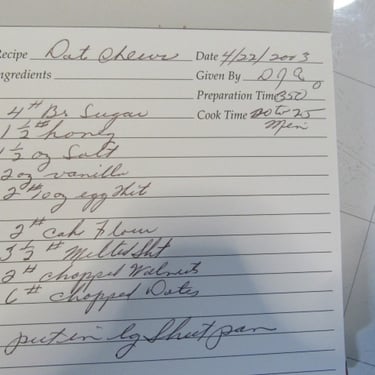 Recipe Dat Chews Date 4/22/2003
Ingredients Given By
Preparation Time 350
4 # Br Sugar Cook Time 20 to 25
1 1/2 # honey Min
1 1/2 oz Salt
2 oz vanilla
2 # oz egg
2 # cake Flour
3 1/2 # Melted Sht
2 # chopped Walnuts
6 # Chopped Dates
put in lg Sheet pan